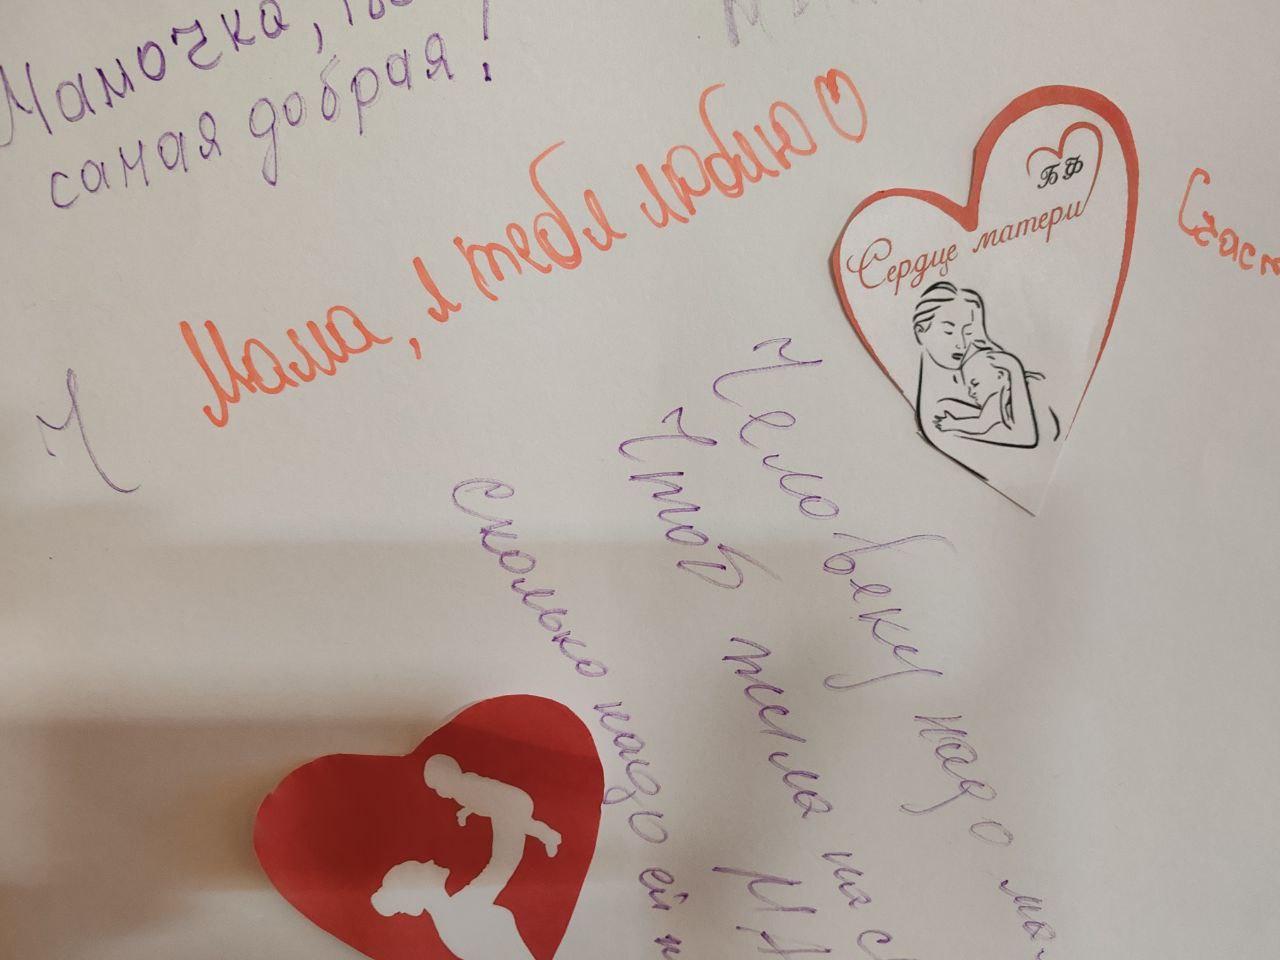 Мамочка,
самая добрая!
Мама, я тебя люблю
БФ
Сердце матери
Человеку надо
Чтоб жила на
сколько надо ей